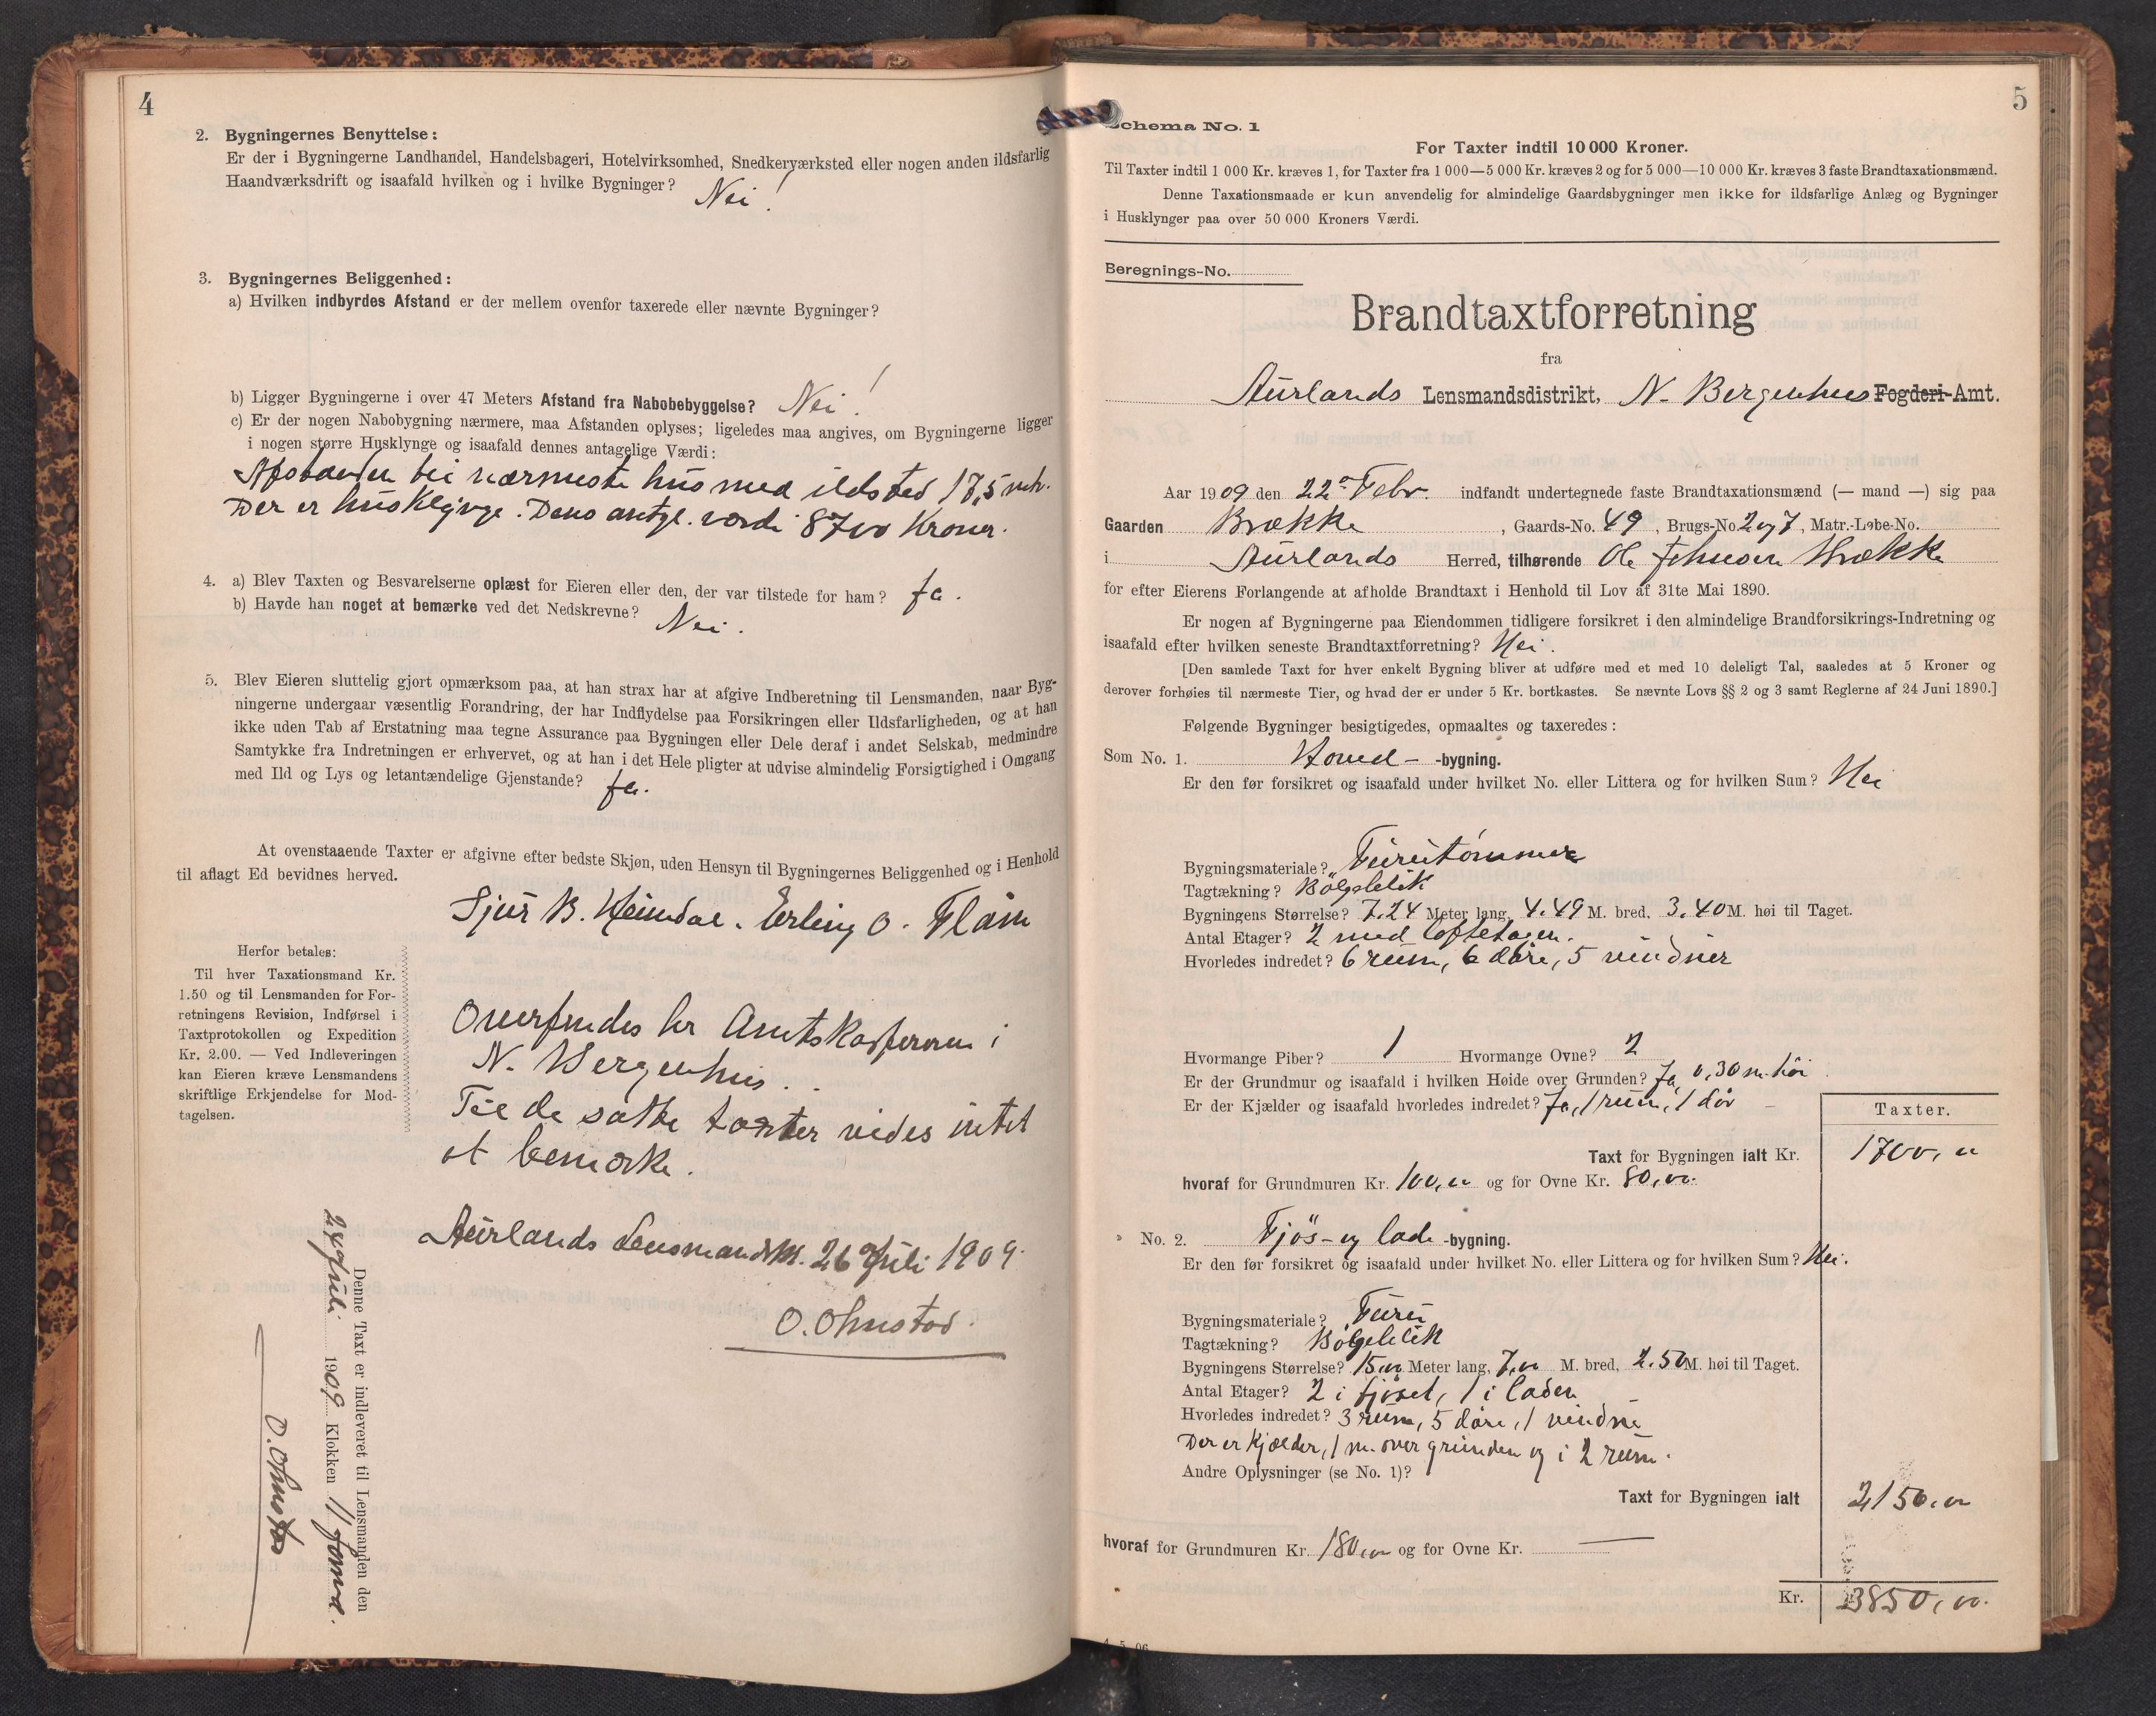 4
2. Bygningernes Benyttelse:
Er der i Bygningerne Landhandel, Handelsbageri, Hotelvirksomhed, Snedkerværksted eller nogen anden ildsfarlig
Haandværksdrift og isaafald hvilken og i hvilke Bygninger? Nei!
3. Bygningernes Beliggenhed:
a) Hvilken indbyrdes Afstand er der mellem ovenfor taxerede eller nævnte Bygninger?
b) Ligger Bygningerne i over 47 Meters Afstand fra Nabobebyggelse? Nei!
c) Er der nogen Nabobygning nærmere, maa Afstanden oplyses; ligeledes maa angives, om Bygningerne ligger
i nogen større Husklynge og isaafald dennes antagelige Værdi:
Afstanden til nærmeste hus med ildsted 17,5 mtr.
Der er husklynge. Dens antgl. værdi 8700 Kroner.
4. a) Blev Taxten og Besvarelserne oplæst for Eieren eller den, der var tilstede for ham? Ja.
b) Havde han noget at bemærke ved det Nedskrevne? Nei.
5. Blev Eieren sluttelig gjort opmærksom paa, at han strax har at afgive Indberetning til Lensmanden, naar Byg-
ningerne undergaar væsentlig Forandring, der har Indflydelse paa Forsikringen eller Ildsfarligheden, og at han
ikke uden Tab af Erstatning maa tegne Assurance paa Bygningen eller Dele deraf i andet Selskab, medmindre
Samtykke fra Indretningen er erhvervet, og at han i det Hele pligter at udvise almindelig Forsigtighed i Omgang
med Ild og Lys og letantændelige Gjenstande? Ja.
At ovenstaaende Taxter er afgivne efter bedste Skjøn, uden Hensyn til Bygningernes Beliggenhed og i Henhold
til aflagt Ed bevidnes herved.
Sjur B. Heimdal. Erling O. Flåm
Herfor betales:
Til hver Taxationsmand Kr.
1.50 og til Lensmanden for For-
retningens Revision, Indførsel i
Taxtprotokollen og Expedition
Kr. 2.00. — Ved Indleveringen
kan Eieren kræve Lensmandens
skriftlige Erkjendelse for Mod-
tagelsen.
Oversendes hr Amtskasserer i
N. Bergenhus.
Til de satte taxter vides intet
at bemærke.
Aurlands Lensmandsk. 26 Juli 1909.
O. Ohnstad.
Denne Taxt er indleveret til Lensmanden den
24 Juli 1909 Klokken 11 formd.
O. Ohnstad
5
Schema No. 1
For Taxter indtil 10 000 Kroner.
Til Taxter indtil 1 000 Kr. kræves 1, for Taxter fra 1 000—5 000 Kr. kræves 2 og for 5 000—10 000 Kr. kræves 3 faste Brandtaxationsmænd.
Denne Taxationsmaade er kun anvendelig for almindelige Gaardsbygninger men ikke for ildsfarlige Anlæg og Bygninger
i Husklynger paa over 50 000 Kroners Værdi.
Beregnings-No.
Brandtaxtforretning
fra
Aurlands Lensmandsdistrikt, N. Bergenhus Fogderi-Amt.
Aar 1909 den 22 Febr. indfandt undertegnede faste Brandtaxationsmænd (— mand —) sig paa
Gaarden Brække, Gaards-No. 49, Brugs-No 2 og 7, Matr.-Løbe-No.
i Aurlands Herred, tilhørende Ole Johnsen Brække
for efter Eierens Forlangende at afholde Brandtaxt i Henhold til Lov af 31te Mai 1890.
Er nogen af Bygningerne paa Eiendommen tidligere forsikret i den almindelige Brandforsikrings-Indretning og
isaafald efter hvilken seneste Brandtaxtforretning? Nei.
[Den samlede Taxt for hver enkelt Bygning bliver at udføre med et med 10 deleligt Tal, saaledes at 5 Kroner og
derover forhøies til nærmeste Tier, og hvad der er under 5 Kr. bortkastes. Se nævnte Lovs §§ 2 og 3 samt Reglerne af 24 Juni 1890.]
Følgende Bygninger besigtigedes, opmaaltes og taxeredes:
Som No. 1. Hoved- -bygning.
Er den før forsikret og isaafald under hvilket No. eller Littera og for hvilken Sum? Nei
Bygningsmateriale? Furutømmer
Tagtækning? Bølgeblik
Bygningens Størrelse? 7.24 Meter lang, 4.49 M. bred, 3.40 M. høi til Taget.
Antal Etager? 2 med loftetagen.
Hvorledes indredet? 6 rum, 6 døre, 5 vinduer
Hvormange Piber? 1 Hvormange Ovne? 2
Er der Grundmur og isaafald i hvilken Høide over Grunden? Ja, 0,30 m. høi
Er der Kjælder og isaafald hvorledes indredet? Ja, 1 rum, 1 dør
Taxter.
Taxt for Bygningen ialt Kr. 1700,00
hvoraf for Grundmuren Kr. 100,00 og for Ovne Kr. 80,00.
No. 2. Fjøs- og lade -bygning.
Er den før forsikret og isaafald under hvilket No. eller Littera og for hvilken Sum? Nei.
Bygningsmateriale? Furu
Tagtækning? Bølgeblik
Bygningens Størrelse? 15,00 Meter lang, 7,00 M. bred, 2.50 M. høi til Taget.
Antal Etager? 2 i fjøset, 1 i laden
Hvorledes indredet? 3 rum, 5 døre, 1 vindue
Der er Kjælder, 1 m. over grunden og i 2 rum.
Andre Oplysninger (se No. 1)?
Taxt for Bygningen ialt 2150,00
hvoraf for Grundmuren Kr. 180,00 og for Ovne Kr. —
Kr. 3850,00.